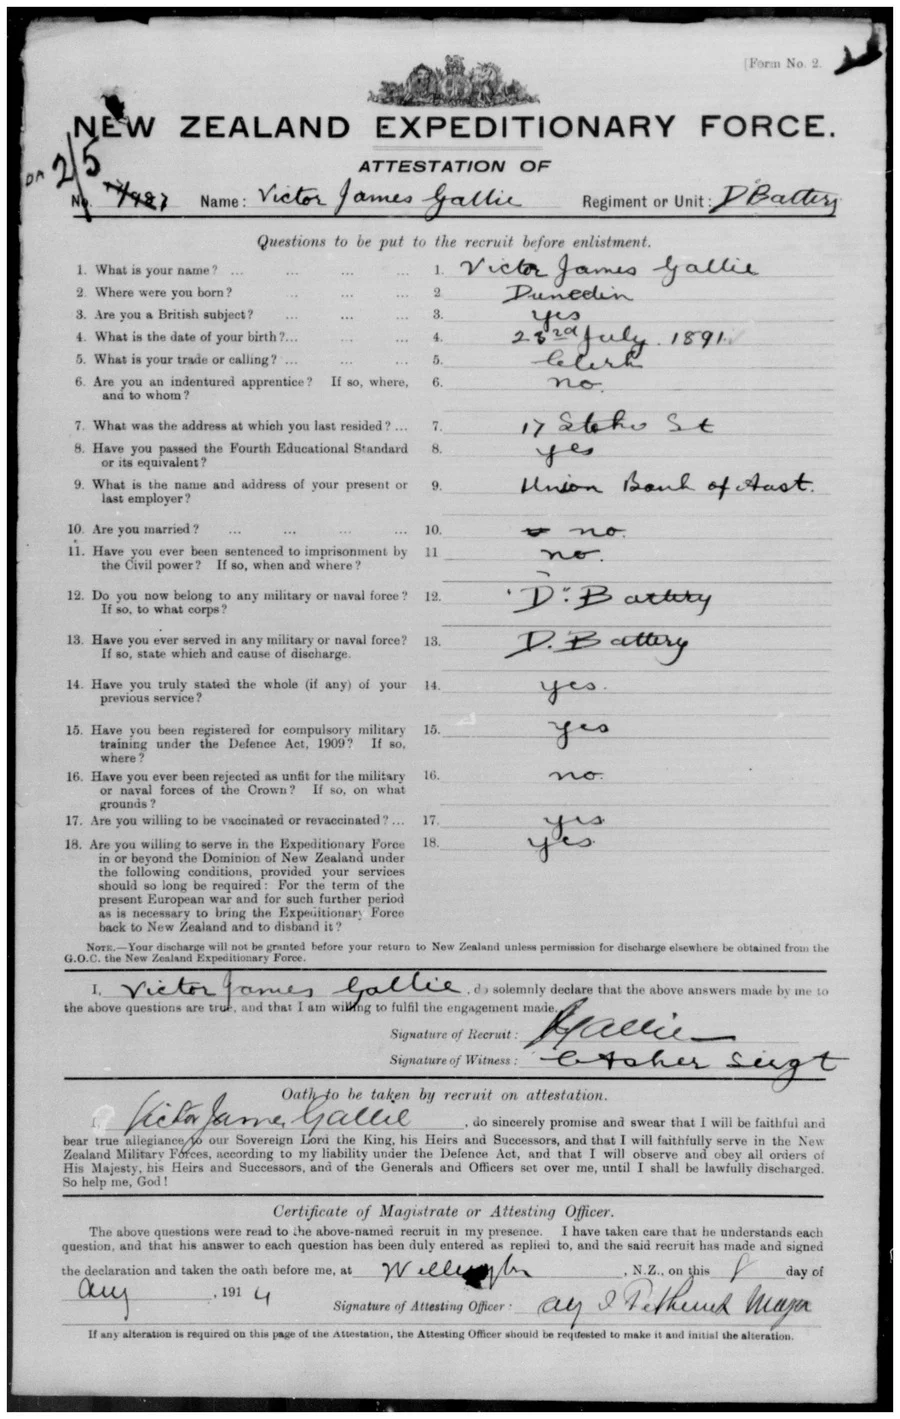 (Form No. 2.
NEW ZEALAND EXPEDITIONARY FORCE.
ATTESTATION OF
2/5
No. Name: Victor James Gallie Regiment or Unit: "D" Battery
Questions to be put to the recruit before enlistment.
1. What is your name? ... ... ... ... 1. Victor James Gallie
2. Where were you born? ... ... ... 2. Dunedin
3. Are you a British subject? ... ... ... 3. yes
4. What is the date of your birth?... ... ... 4. 23rd July. 1891
5. What is your trade or calling? ... ... ... 5. Clerk
6. Are you an indentured apprentice? If so, where, 6. no.
and to whom?
7. What was the address at which you last resided? ... 7. 17 St
8. Have you passed the Fourth Educational Standard 8. yes
or its equivalent?
9. What is the name and address of your present or 9. Union Bank of Aust.
last employer?
10. Are you married? ... ... ... ... 10. no.
11. Have you ever been sentenced to imprisonment by 11 no.
the Civil power? If so, when and where?
12. Do you now belong to any military or naval force? 12. "D". Battery
If so, to what corps?
13. Have you ever served in any military or naval force? 13. D. Battery
If so, state which and cause of discharge.
14. Have you truly stated the whole (if any) of your 14. yes.
previous service?
15. Have you been registered for compulsory military 15. yes
training under the Defence Act, 1909? If so,
where?
16. Have you ever been rejected as unfit for the military 16. no.
or naval forces of the Crown? If so, on what
grounds?
17. Are you willing to be vaccinated or revaccinated? ... 17. yes
18. Are you willing to serve in the Expeditionary Force 18. yes
in or beyond the Dominion of New Zealand under
the following conditions, provided your services
should so long be required: For the term of the
present European war and for such further period
as is necessary to bring the Expeditionary Force
back to New Zealand and to disband it?
NOTE.—Your discharge will not be granted before your return to New Zealand unless permission for discharge elsewhere be obtained from the
G.O.C. the New Zealand Expeditionary Force.
I, Victor James Gallie, do solemnly declare that the above answers made by me to
the above questions are true, and that I am willing to fulfil the engagement made.
Signature of Recruit: Gallie
Signature of Witness: Asher Sergt
Oath to be taken by recruit on attestation.
I, Victor James Gallie, do sincerely promise and swear that I will be faithful and
bear true allegiance to our Sovereign Lord the King, his Heirs and Successors, and that I will faithfully serve in the New
Zealand Military Forces, according to my liability under the Defence Act, and that I will observe and obey all orders of
His Majesty, his Heirs and Successors, and of the Generals and Officers set over me, until I shall be lawfully discharged.
So help me, God!
Certificate of Magistrate or Attesting Officer.
The above questions were read to the above-named recruit in my presence. I have taken care that he understands each
question, and that his answer to each question has been duly entered as replied to, and the said recruit has made and signed
the declaration and taken the oath before me, at Wellington, N.Z., on this 8 day of
Aug, 1914
Signature of Attesting Officer: Petherick Major
If any alteration is required on this page of the Attestation, the Attesting Officer should be requested to make it and initial the alteration.